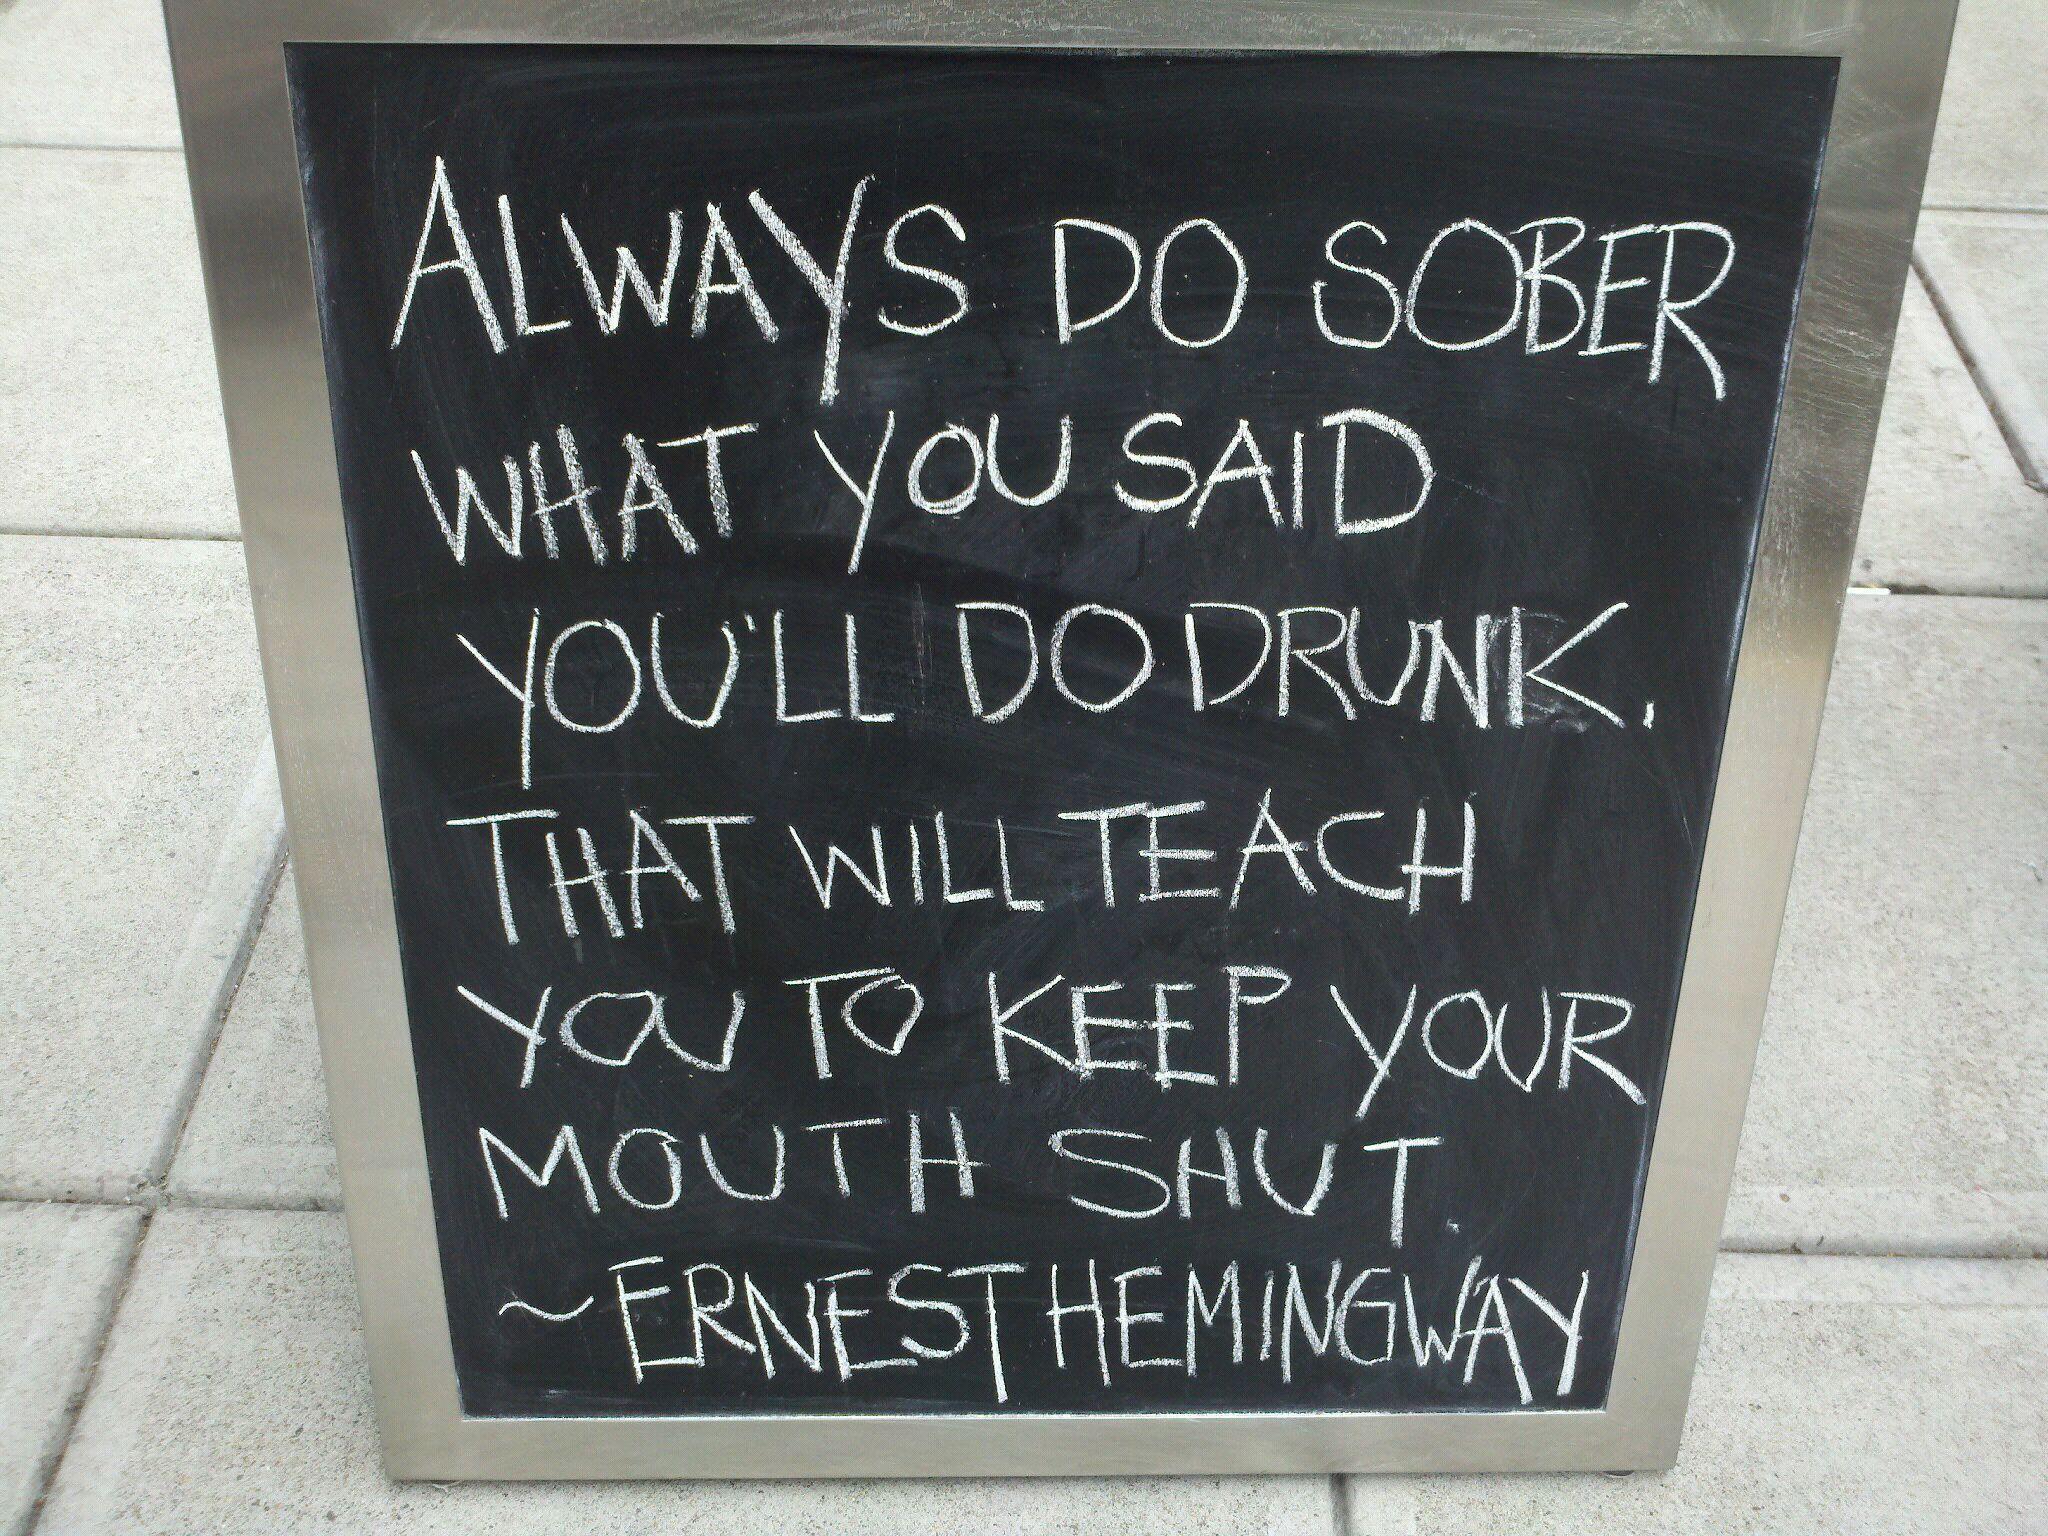 ALWAYS DO SOBER
WHAT YOU SAID
YOU'LL DO DRUNK.
THAT WILL TEACH
YOU TO KEEP YOUR
MOUTH SHUT.
~ERNEST HEMINGWAY